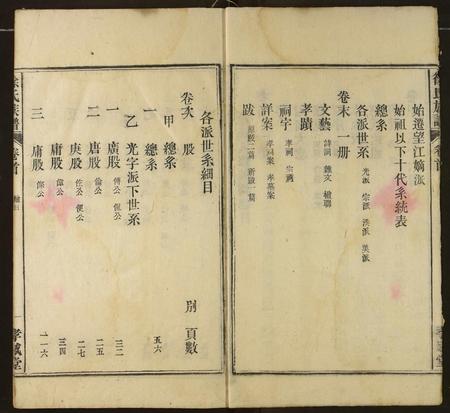 徐氏族譜 卷首
始遷望江嫡派
始祖以下十代系統表
總系
各派世系 光派 宗派 洪派 美派
卷末 一册
文藝 詩詞 雜文 楹聯
孝蹟
祠宇 孝祠 宗祠
詳案 孝祠案 孝墓案
跋 原跋二篇 新跋一篇
孝感堂
各派世系細目
卷次 股 別 頁數
甲 總系
一 總系 五六
乙 光字派下世系
一 廣股 傅公 侹公 三二
二 唐股 倫公 二五
庚股 佺公 便公 二七
庸股 偉公 三四
三 庸股 傑公 一一六
徐氏族譜 卷首
孝感堂